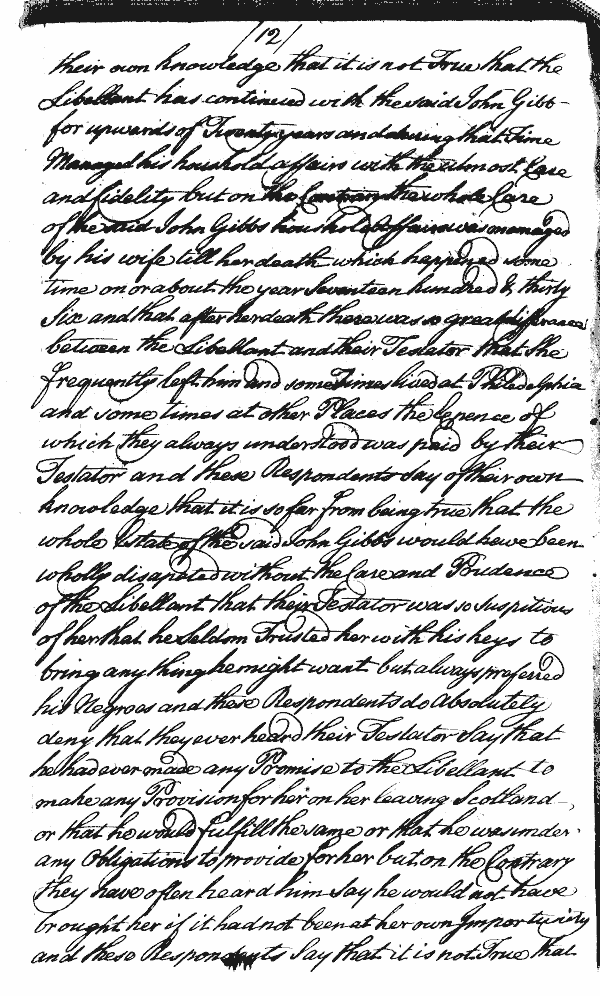 /12/
their own knowledge that it is not True that the
Libellant has continued with the said John Gibb-
for upwards of Twenty years and during that Time
Managed his houshold affairs with the utmost Care
and fidelity but on the Contrary the whole Care
of the said John Gibbs houshold affairs was managed
by his wife till her death which happened some
time on or about the year Seventeen hundred & thirty
Six and that after her death there was so great differances
between the Libellant and their Testator that She
frequently left him and some Times lived at Philedelphia
and some times at other Places the Expence of
which they always understood was paid by their
Testator and these Respondents Say of their own
knowledge that it is so far from being true that the
whole Estate of the said John Gibbs would have been
wholly disapated without the Care and Prudence
of the Libellant that their Testator was so Suspitious
of her that he Seldom Trusted her with his keys to
bring any thing he might want but always preferred
his Negroes and these Respondents do Absolutely
deny that they ever heard their Testator Say that
he had ever made any Promise to the Libellant to
make any Provision for her on her leaving Scotland
or that he would fulfill the same or that he was under
any Obligations to provide for her but on the Contrary
they have often heard him Say he would not have
brought her if it had not been at her own Importunity
and these Respondents Say that it is not True that